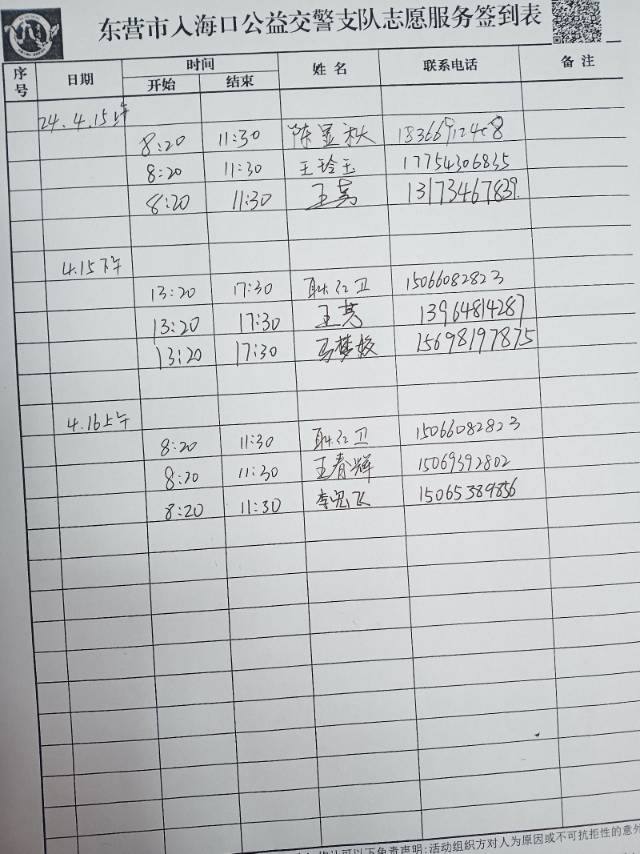 东营市入海口公益交警支队志愿服务签到表
序号 日期 时间 姓名 联系电话 备注
开始 结束
24.4.15上午
8:20 11:30 陈显秋
8:20 11:30 王玲玉 17754306835
8:20 11:30 王芳 13173467839
4.15下午
13:20 17:30 耿红卫 15066082823
13:20 17:30 王芳 13964814287
13:20 17:30 马梦姣 15698197875
4.16上午
8:20 11:30 耿红卫 15066082823
8:20 11:30 王春辉 15069392802
8:20 11:30 15065389856
以下免责声明:活动组织方对人为原因或不可抗拒性的意外